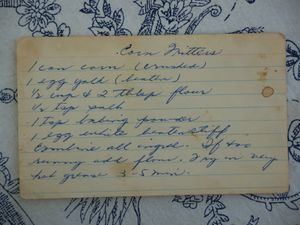 Corn Fritters
1 can corn (crushed)
1 egg yolk (beaten)
½ cup & 2 tbsp flour
½ tsp salt
1 tsp baking powder
1 egg white beaten stiff
Combine all ingred. If too
runny add flour. Fry in very
hot grease 3-5 min.